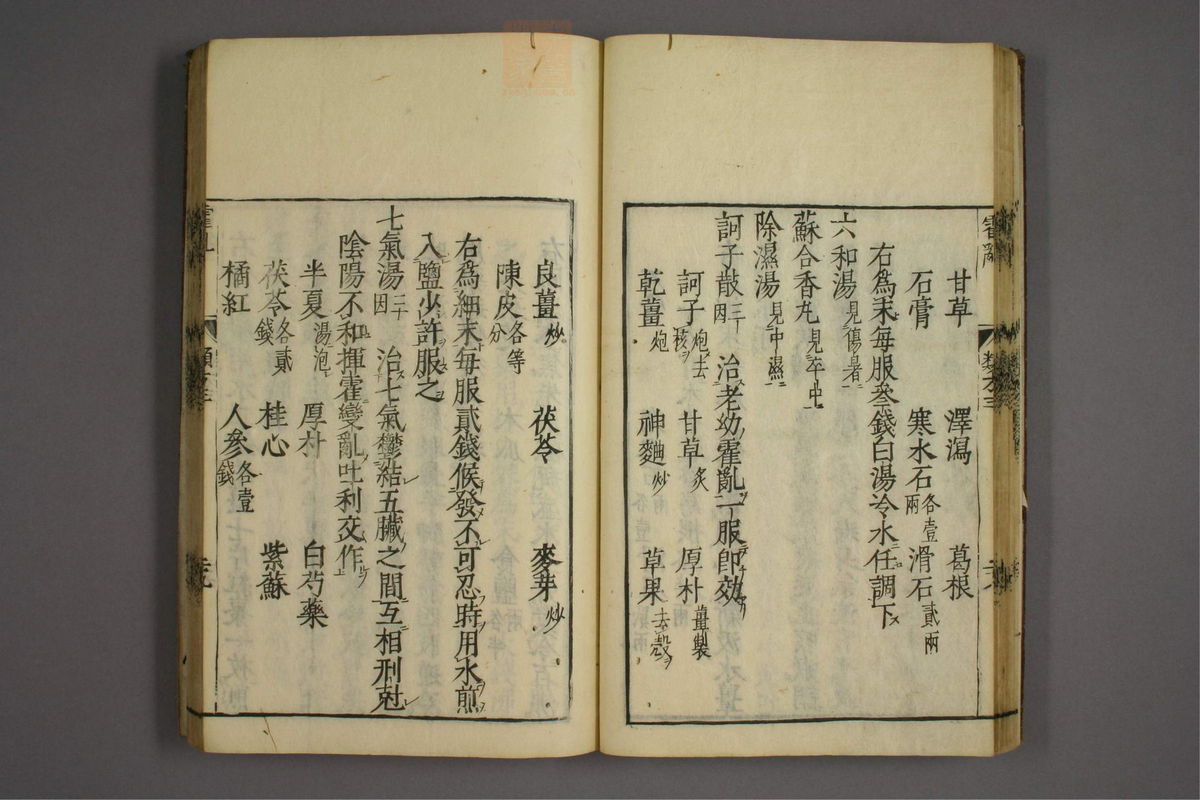 甘草 澤瀉 葛根
石膏 寒水石各壹兩 滑石貳兩
右爲末每服叄錢白湯冷水任調下
六和湯見傷暑
蘇合香丸見卒中
除濕湯見中濕
訶子散三十因 治老幼霍亂一服卽效
訶子炮去核 甘草炙 厚朴薑製
乾薑炮 神麯炒 草果去殼
良薑炒 茯苓 麥芽炒
陳皮各等分
右爲細末每服貳錢候發不可忍時用水煎
入鹽少許服之
七氣湯二十因 治七氣鬱結五臟之間互相刑尅
陰陽不和揮霍變亂吐利交作
半夏湯泡 厚朴 白芍藥
茯苓各貳錢 桂心 紫蘇
橘紅 人參各壹錢
霍亂
類方三